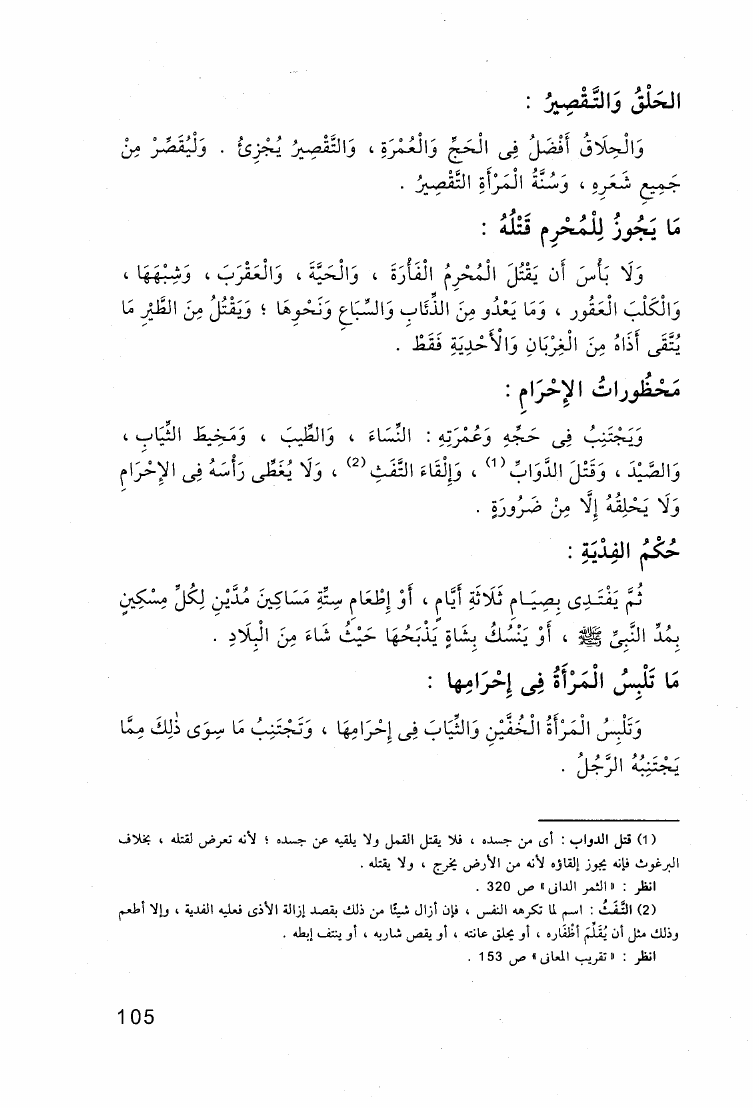 الحَلْقُ وَالتَّقْصِيرُ :
وَالْحِلَاقُ أَفْضَلُ فِى الْحَجِّ وَالْعُمْرَةِ ، وَالتَّقْصِيرُ يُجْزِئُ . وَلْيُقَصِّرْ مِنْ
جَمِيعِ شَعَرِهِ ، وَسُنَّةُ الْمَرْأَةِ التَّقْصِيرُ .
مَا يَجُوزُ لِلْمُحْرِمِ قَتْلُهُ :
وَلَا بَأْسَ أَن يَقْتُلَ الْمُحْرِمُ الْفَأْرَةَ ، وَالْحَيَّةَ ، وَالْعَقْرَبَ ، وَشِبْهَهَا ،
وَالْكَلْبَ العَقُور ، وَمَا يَعْدُو مِنَ الذِّئَابِ وَالسِّبَاعِ وَنَحْوِهَا ؛ وَيَقْتُلُ مِنَ الطَّيْرِ مَا
يُتَّقَى أَذَاهُ مِنَ الْغِرْبَانِ وَالْأَحْدِيَةِ فَقَطْ .
مَحْظُورَاتُ الإِحْرَامِ :
وَيَجْتَنِبُ فِى حَجِّهِ وَعُمْرَتِهِ : النِّسَاءَ ، وَالطِّيبَ ، وَمَخِيطَ الثِّيَابِ ،
وَالصَّيْدَ ، وَقَتْلَ الدَّوَابِّ (1) ، وَإِلْقَاءَ التَّفَثِ (2) ، وَلَا يُغَطِّى رَأْسَهُ فِى الإِحْرَامِ
وَلَا يَحْلِقْهُ إِلَّا مِنْ ضَرُورَةٍ .
حُكْمُ الفِدْيَةِ :
ثُمَّ يَفْتَدِى بِصِيَامِ ثَلَاثَةِ أَيَّامٍ ، أَوْ إِطْعَامِ سِتَّةِ مَسَاكِينَ مُدَّيْنِ لِكُلِّ مِسْكِينٍ
بِمُدِّ النَّبِىِّ ﷺ ، أَوْ يَنْسُكُ بِشَاةٍ يَذْبَحُهَا حَيْثُ شَاءَ مِنَ الْبِلَادِ .
مَا تَلْبِسُ الْمَرْأَةُ فِى إِحْرَامِها :
وَتَلْبِسُ الْمَرْأَةُ الْخُفَّيْنِ وَالثِّيَابَ فِى إِحْرَامِهَا ، وَتَجْتَنِبُ مَا سِوَى ذٰلِكَ مِمَّا
يَجْتَنِبُهُ الرَّجُلُ .
(1) قتل الدواب : أى من جسده ، فلا يقتل القمل ولا يلقيه عن جسده ؛ لأنه تعرض لقتله ، بخلاف
البرغوث فإنه يجوز إلقاؤه لأنه من الأرض يخرج ، ولا يقتله .
انظر : « الثمر الدانى » ص 320 .
(2) التَّفَثُ : اسم لما تكرهه النفس ، فإن أزال شيئًا من ذلك بقصد إزالة الأذى فعليه الفدية ، وإلا أطعم
وذلك مثل أن يُقَلِّمَ أظفاره ، أو يحلق عانته ، أو يقص شاربه ، أو ينتف إبطه .
انظر : « تقريب المعانى » ص 153 .
105